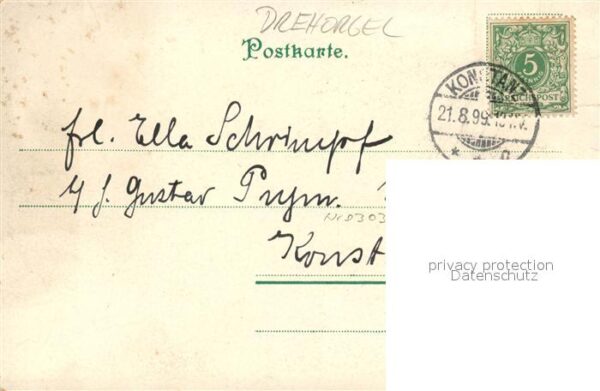 DREHORGEL
Postkarte.
5
REICHSPOST
KONSTANZ
21.8.99.
frl. Ella Schrimpf
Gustav Prym.
Konst
privacy protection
Datenschutz